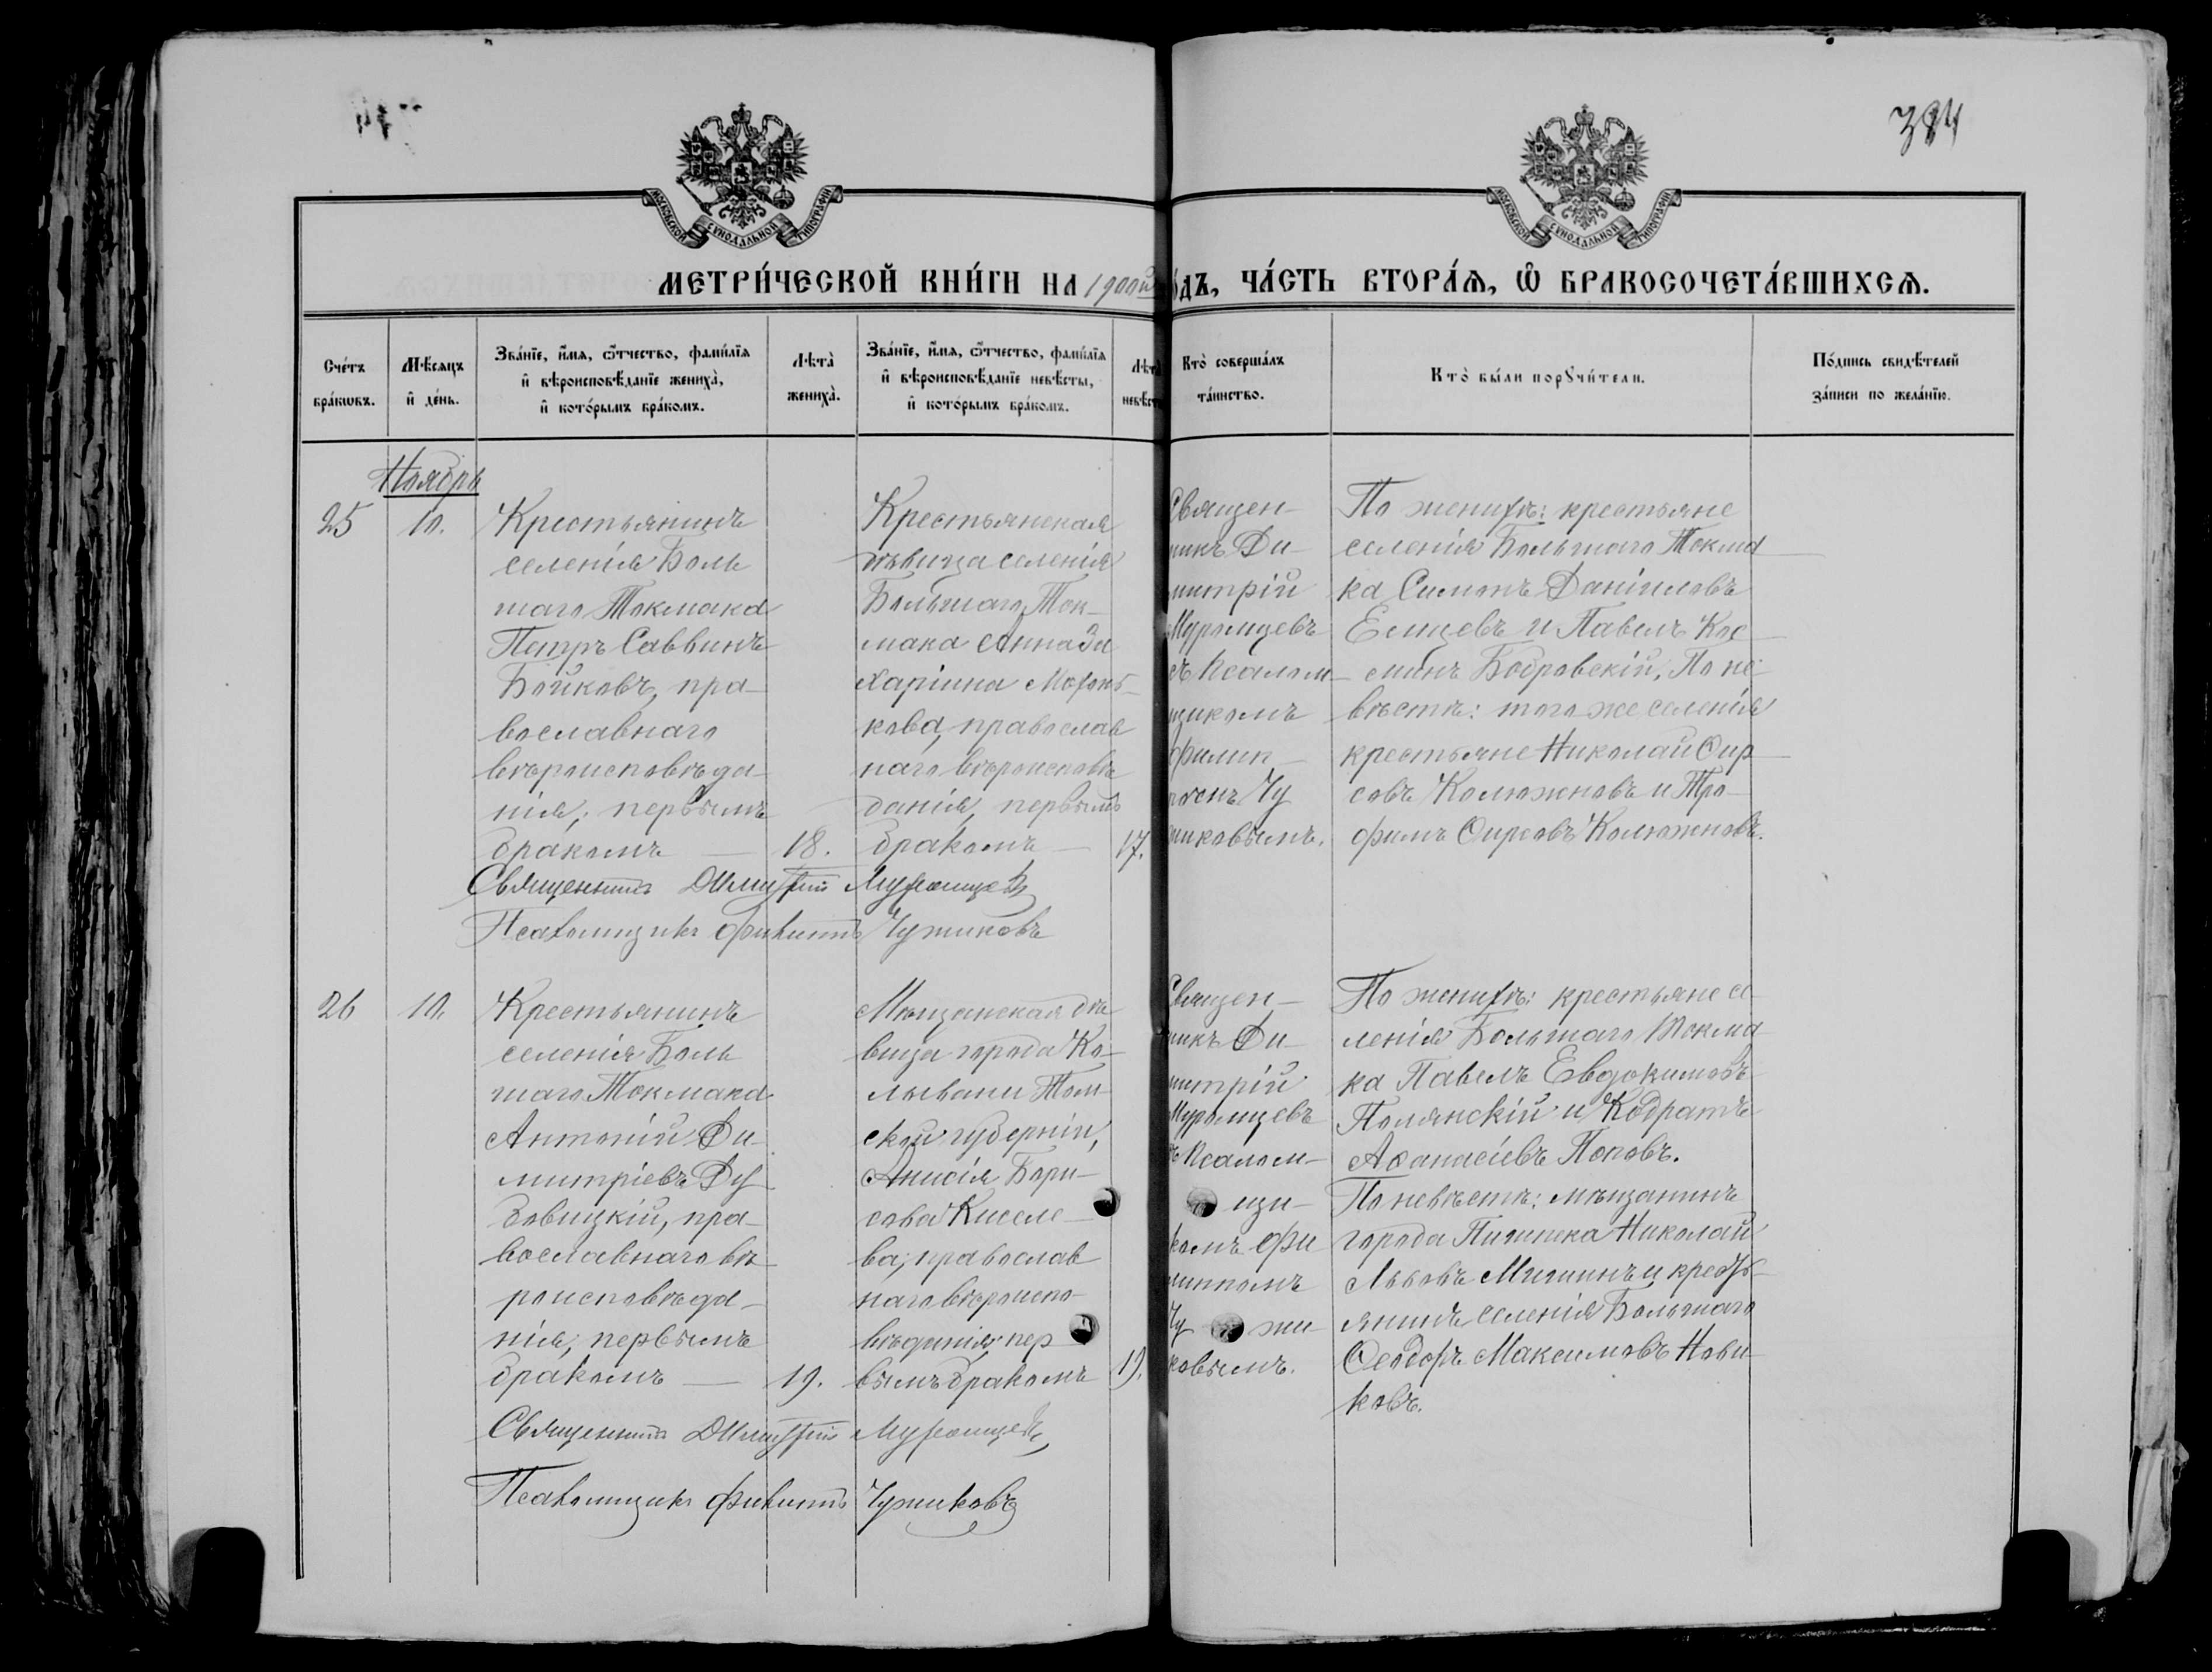 384
МОСКОВСКОЙ СУНОДАЛЬНОЙ ТИПОГРАФІИ
МОСКОВСКОЙ СУНОДАЛЬНОЙ ТИПОГРАФІИ
МЕТРИ́ЧЕСКОЙ КНИ́ГИ НА 1900й
о́дъ, ЧА́СТЬ ВТОРА́Я, Ѡ҆ БРАКОСОЧЕТА́ВШИХСЯ.
Сче́тъ
бра́кѡвъ.
Мѣ́сяцъ
и҆ де́нь.
Зва́нїе, и҆́мя, ѻ҆́тчество, фами́лїя
и҆ вѣроисповѣ́данїе жениха̀,
и҆ кото́рымъ бра́комъ.
Лѣта̀
жениха̀.
Зва́нїе, и҆́мя, ѻ҆́тчество, фами́лїя
и҆ вѣроисповѣ́данїе невѣ́сты,
и҆ кото́рымъ бра́комъ.
Лѣта
невѣст
Кто̀ соверша́лъ
та́инство.
Кто̀ бы́ли порꙋчи́тели.
По́дпись свидѣ́телей
за́писи по жела́нїю.
Ноябрь
25
10.
Крестьянинъ
селенія Боль
шаго Токмака
Петръ Саввинъ
Бойковъ, пра-
вославнаго
вѣроисповѣда-
нія, первымъ
бракомъ —
18.
Крестьянская
дѣвица селенія
Большаго Ток-
мака Анна За
харіина Мохонь-
кова, православ
наго вѣроисповѣ
данія, первымъ
бракомъ —
17.
Священ-
никъ Ди-
митрій
Муромцевъ
съ Псалом-
щикомъ
Филип-
помъ Чу
жиковымъ.
По женихѣ: крестьяне
селенія Большаго Токма
ка Симонъ Даніиловъ
Елисевъ и Павелъ Кос
минъ Бобровскій. По не-
вѣстѣ: того же селенія
крестьяне Николай Ѳир
совъ Колюжновъ и Тро-
фимъ Ѳирсовъ Колюжновъ.
Священникъ Димитрій Муромцевъ
Псаломщикъ Филиппъ Чужиковъ
26
10.
Крестьянинъ
селенія Боль
шаго Токмака
Антоній Ди-
митріевъ Ду
бовицкій, пра-
вославнаго вѣ
роисповѣда-
нія, первымъ
бракомъ —
19.
Мѣщанская дѣ
вица города Ко-
лывани Том-
ской губерніи,
Анисія Бори-
сова Кисле-
ва, православ
наго вѣроиспо-
вѣданія, пер
вымъ бракомъ
19.
Священ-
никъ Ди-
митрій
Муромцевъ
съ Псалом-
щи-
комъ Фи
липпомъ
Чу жи-
ковымъ.
По женихѣ: крестьяне се-
ленія Большаго Токма
ка Павелъ Евдокимовъ
Полянскій и Кодратъ
Аѳанасіевъ Поповъ.
По невѣстѣ: мѣщанинъ
города Пишпека Николай
Львовъ Мишинъ и кресть-
янинъ селенія Большаго
Ѳеодоръ Максимовъ Нови-
ковъ.
Священникъ Димитрій Муромцевъ
Псаломщикъ Филиппъ Чужиковъ